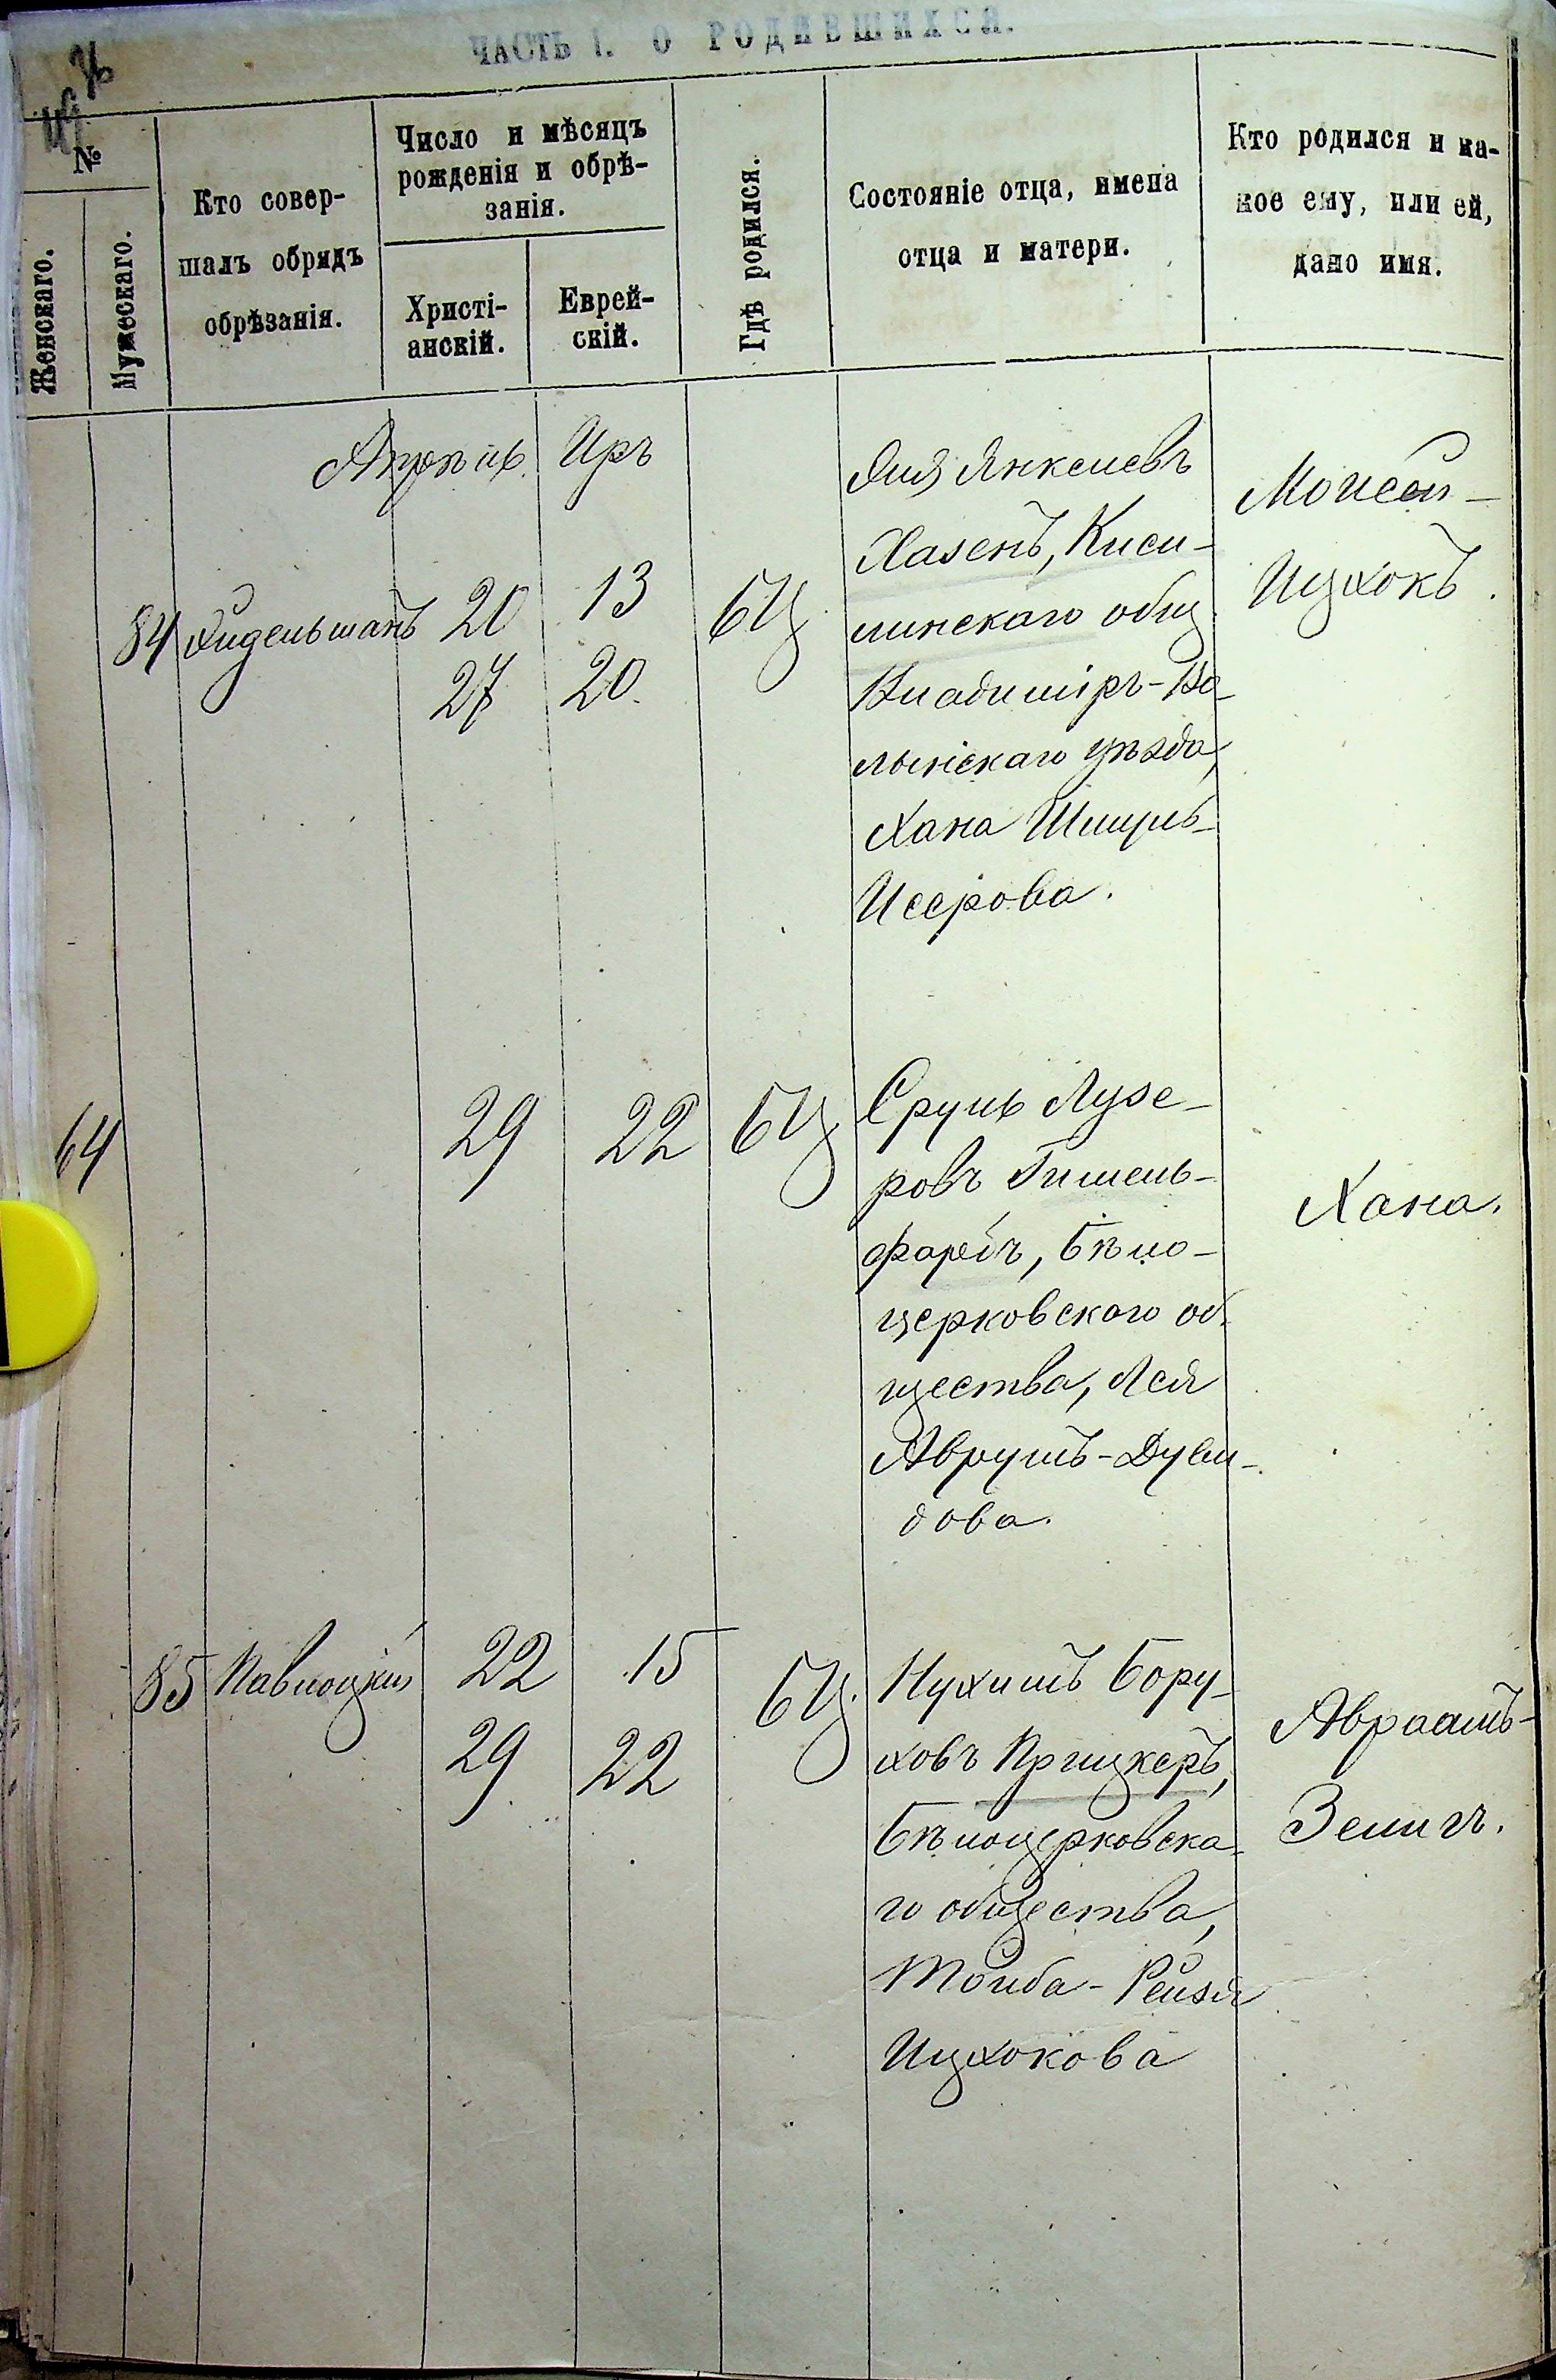 ЧАСТЬ I. О РОДИВШИХСЯ.
№
Женскаго.
Мужескаго.
Кто совер-
шалъ обрядъ
обрѣзанія.
Число и мѣсяцъ
рожденія и обрѣ-
занія.
Христі-
анскій.
Еврей-
скій.
Гдѣ родился.
Состояніе отца, имена
отца и матери.
Кто родился и ка-
кое ему, или ей,
дано имя.
Апрѣль Иръ
84 20 13 БЦ
27 20.
Янкелевъ
Хазенъ, Киси-
линскаго общ.
Владиміръ-Во-
лынскаго уѣзда,
Хана Шмуль-
Исерова.
Мойсей-
Ицхокъ.
64 29 22 БЦ
Сруль Лузе-
ровъ Гишель-
фарбъ, Бѣло-
церковскаго об-
щества, Лея
Аврумъ-Дуви-
дова.
Хана.
85 Павлоцкій 22 15 БЦ.
29 22
Нухимъ Бору-
ховъ Прицкеръ,
Бѣлоцерковска-
го общества,
Тойба-Рейзя
Ицхокова
Авраамъ-
Зелигъ.